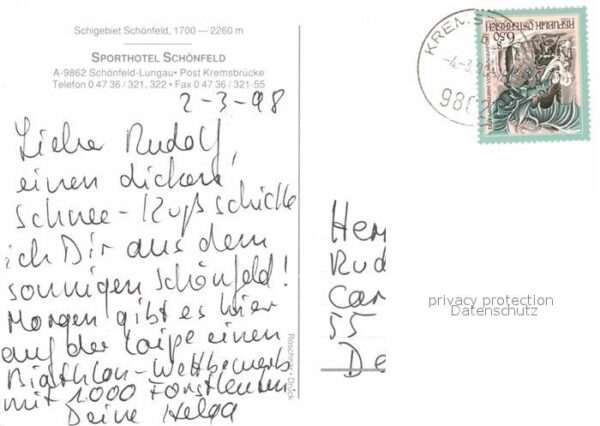 Schigebiet Schönfeld, 1700 — 2260 m
SPORTHOTEL SCHÖNFELD
A-9862 Schönfeld-Lungau • Post Kremsbrücke
Telefon 0 47 36 / 321, 322 • Fax 0 47 36 / 321-55
2-3-98
Lieber Rudolf,
einen dicken
Schnee-Kuß schicke
ich Dir aus dem
sonnigen Schönfeld!
Morgen gibt es hier
auf der Loipe einen
Biathlon-Wettbewerb
mit 1000 Forstleuten
Deine Helga
REPUBLIK ÖSTERREICH
6.50
KREMS
986
Her
Rud
Car
55
De
privacy protection
Datenschutz